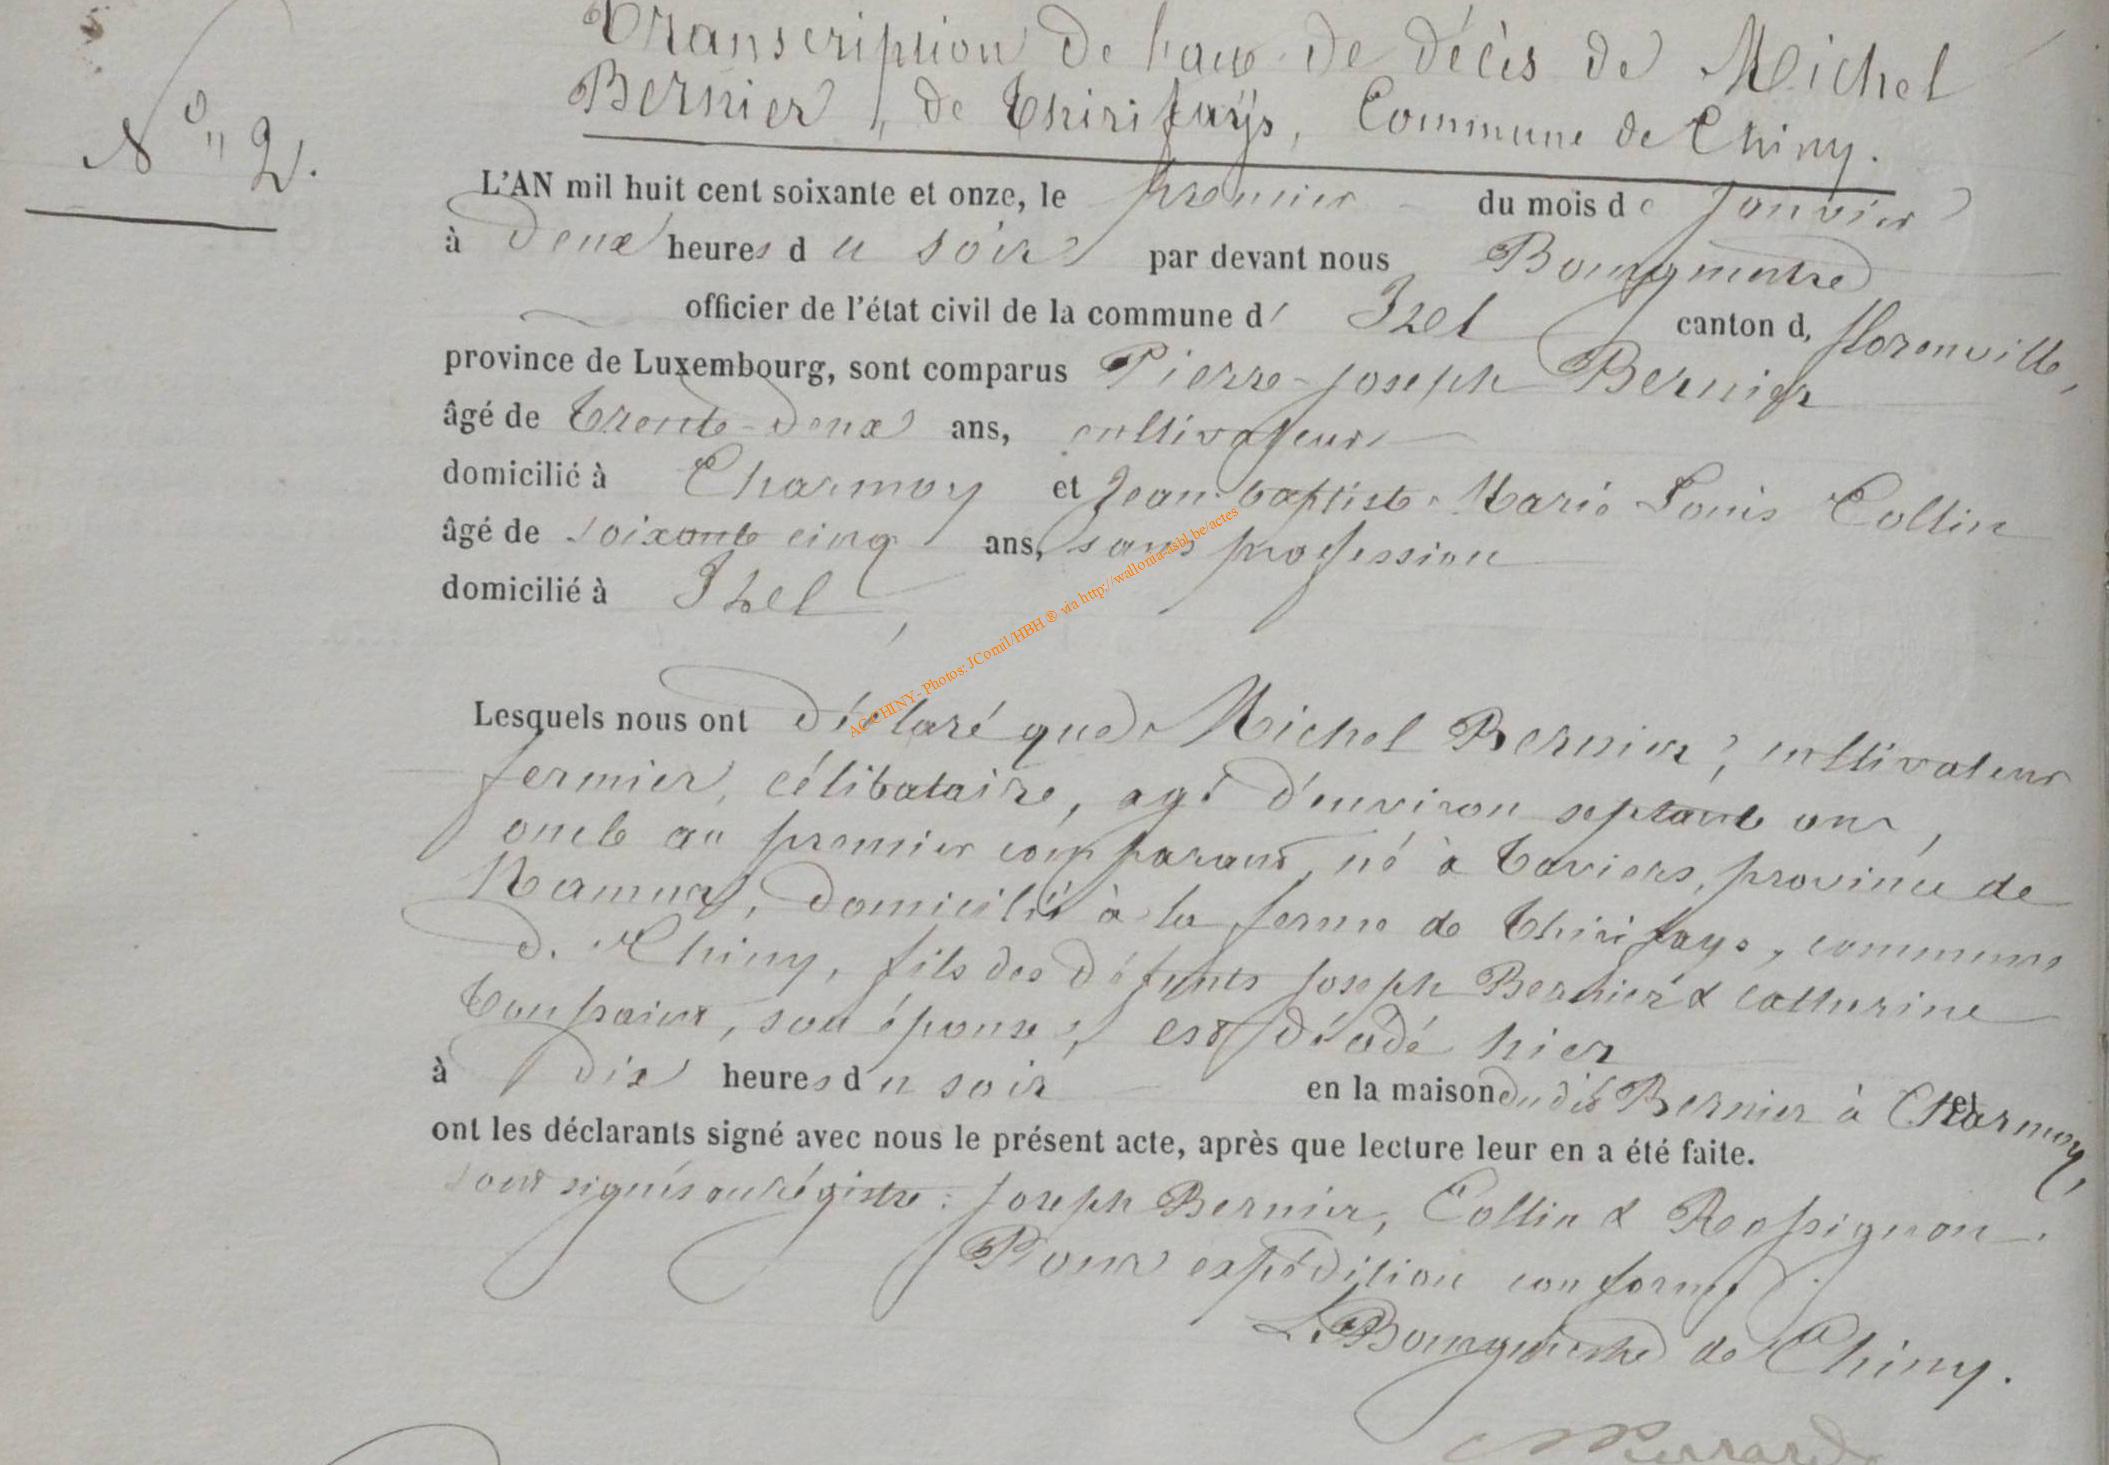 Transcription de l'acte de décès de Michel
Bernier, de Thirifays, Commune de Chiny.
N° 2.
L'AN mil huit cent soixante et onze, le premier du mois de Janvier
à deux heures du soir par devant nous Bourgmestre
officier de l'état civil de la commune d' Izel canton d. florenville,
province de Luxembourg, sont comparus Pierre-Joseph Bernier
âgé de trente-deux ans, cultivateur
domicilié à Charmoy et Jean-baptiste-Marie Louis Collin
âgé de soixante cinq ans, sans profession
domicilié à Izel,
AC CHINY - Photos: JComil/HBH ® via http://wallonia-asbl.be/actes
Lesquels nous ont déclaré que Michel Bernier, cultivateur
fermier, célibataire, agé d'environ septante ans,
oncle au premier comparant, né à Taviers, province de
Namur, domicilié à la ferme de Thirifays, commune
d. Chiny, fils des défunts Joseph Bernier & Catherine
Toussaint, son épouse, est décédé hier
à dix heures du soir en la maison dudit Bernier à Charmoy, et
ont les déclarants signé avec nous le présent acte, après que lecture leur en a été faite.
sont signés au régistre: Joseph Bernier, Collin & Rossignon.
Pour expédition conforme:
Le Bourgmestre de Chiny.